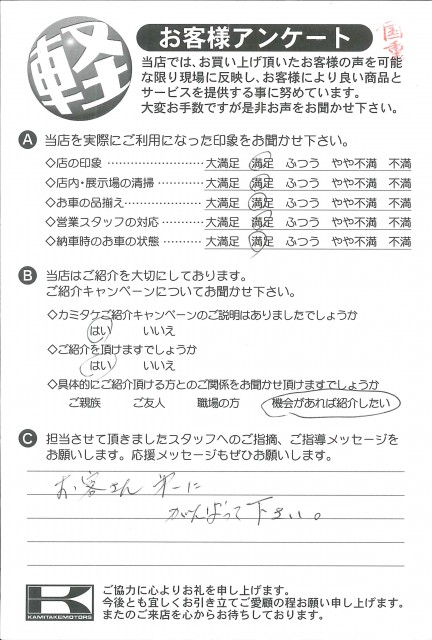 軽
お客様アンケート
当店では、お買い上げ頂いたお客様の声を可能
な限り現場に反映し、お客様により良い商品と
サービスを提供する事に努めています。
大変お手数ですが是非お声をお聞かせ下さい。
A 当店を実際にご利用になった印象をお聞かせ下さい。
◇店の印象 ………………………… 大満足 満足 ふつう やや不満 不満
◇店内・展示場の清掃 …………… 大満足 満足 ふつう やや不満 不満
◇お車の品揃え …………………… 大満足 満足 ふつう やや不満 不満
◇営業スタッフの対応 ………… 大満足 満足 ふつう やや不満 不満
◇納車時のお車の状態 ………… 大満足 満足 ふつう やや不満 不満
B 当店はご紹介を大切にしております。
ご紹介キャンペーンについてお聞かせ下さい。
◇カミタケご紹介キャンペーンのご説明はありましたでしょうか
はい いいえ
◇ご紹介を頂けますでしょうか
はい いいえ
◇具体的にご紹介頂ける方とのご関係をお聞かせ頂けますでしょうか
ご親族 ご友人 職場の方 機会があれば紹介したい
C 担当させて頂きましたスタッフへのご指摘、ご指導メッセージを
お願いします。応援メッセージもぜひお願いします。
お客さん 第一に
がんばって下さい。
K
KAMITAKEMOTORS
ご協力に心よりお礼を申し上げます。
今後とも宜しくお引き立てご愛顧の程お願い申し上げます。
またのご来店を心からお待ちしております。